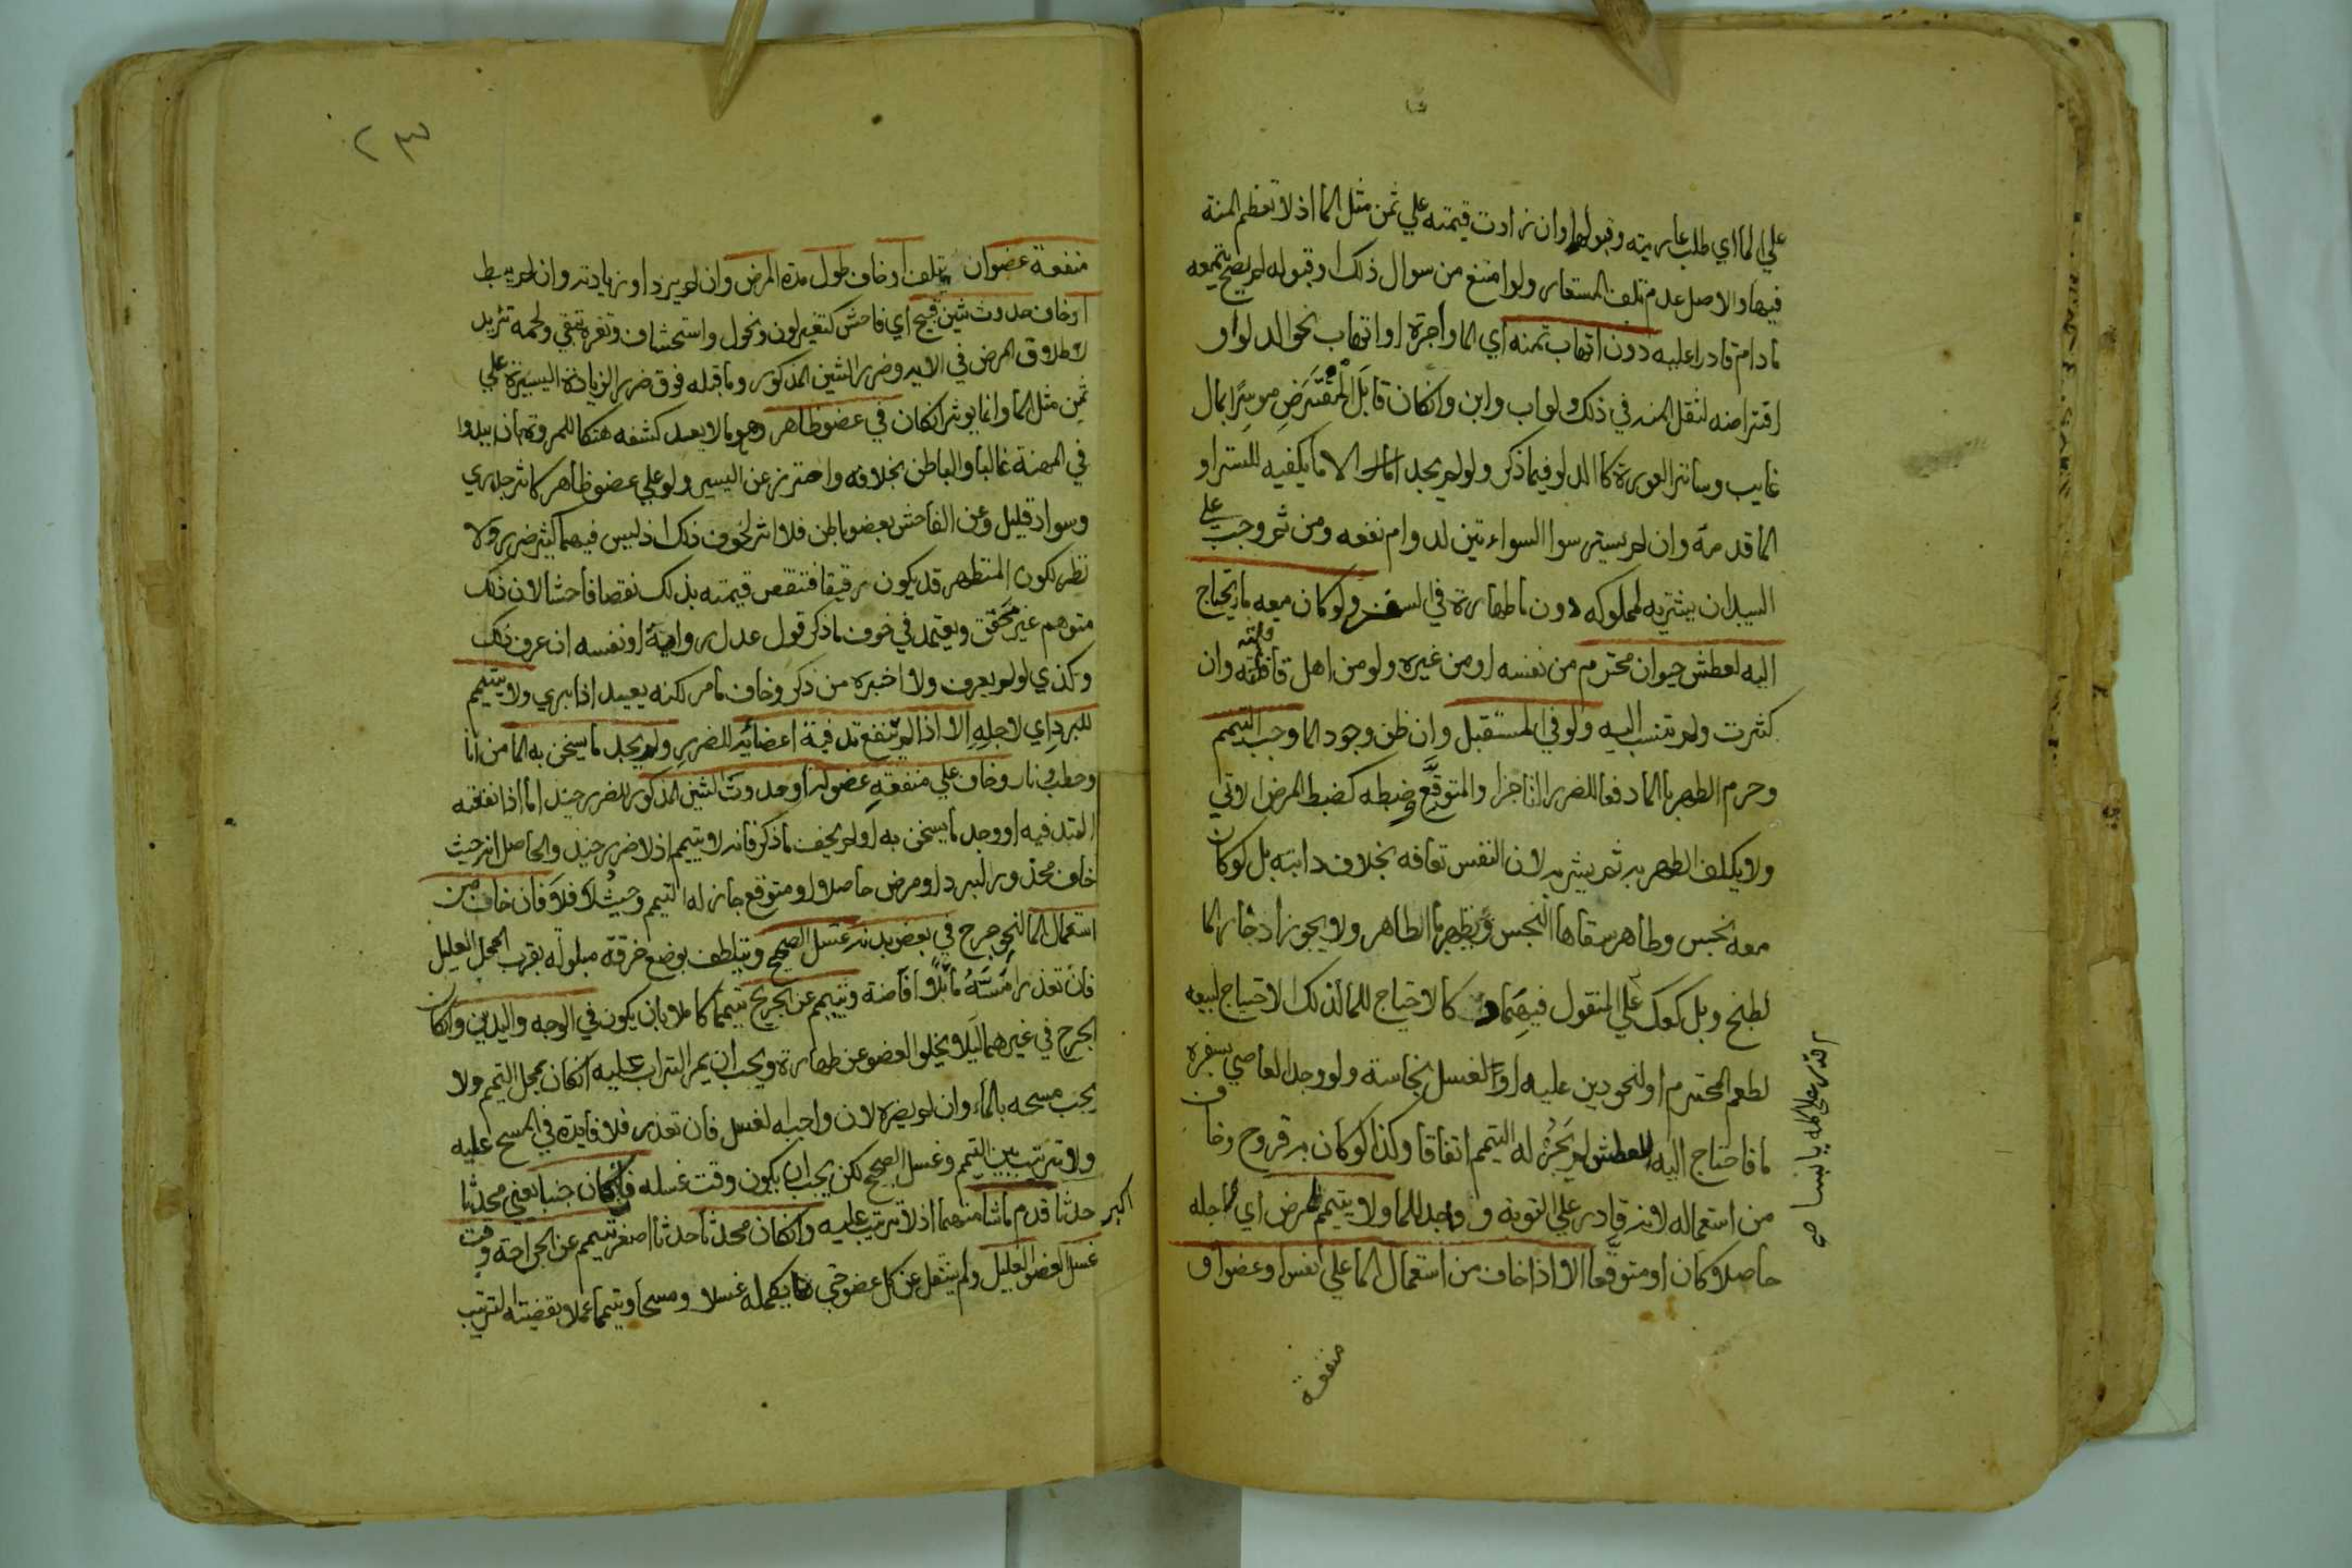 علي الما اي طلب عاريته وقبولها وان زادت قيمته علي ثمن مثل الما اذ لا تعظم المنة
فيها والاصل عدم تلف المستعار ولو امتنع من سوال ذلك او قبوله لم يصح تيممه
ما دام قادرا عليه دون اتهاب ثمنه اي الما او اجرة او اتهاب نحو الدلو او
اقتراضه لثقل المنه في ذلك ولو اب وابن وان كان قابل المقترض موسرا بمال
غايب وساتر العورة كالدلو فيما ذكر ولو لم يجد الا ما يكفيه للستر او
الما قدمه وان لم يستر سوا السواءتين لدوام نفعه ومن ثم وجب علي
السيد ان يشتريه لمملوكه دون ما طهارة في السفر ولو كان معه ما يحتاج
اليه لعطش حيوان محترم من نفسه او من غيره ولو من اهل قافلته وان
كثرت ولم تنسب اليه ولو في المستقبل وان ظن وجود الما وجب التيمم
وحرم الطهر بالما دفعا للضرر الناجز او المتوقع وضبطه كضبط المرض الاتي
ولا يكلف الطهر به ثم يشربه لان النفس تعافه بخلاف دابته بل لو كان
معه نجس وطاهر سقاها النجس وتطهر بالطاهر ولا يجوز ادخار الما
لطبخ وبل كعك علي المنقول فيهما كالاحتياج للما لذلك الاحتياج لبيعه
لطعم المحترم او لنحو دين عليه او لغسل نجاسة ولو وجد العاصي بسفره
ما فاحتاج اليه للعطش لم يجز له التيمم اتفاقا وكذا لو كان به قروح وخاف
من استعماله لانه قادر علي التوبة و واجد للما ولا يتيمم لمرض اي لاجله
حاصلا كان او متوقعا الا اذا خاف من استعمال الما علي نفس او عضو او
منفعة
٢٣
منفعة عضو ان يتلف او خاف طول مدة المرض وان لم يزد او زيادته وان لم يبط
او خاف حدوث شين قبيح اي فاحش كتغير لون ونحول واستحشاف وثغرة تبقي ولحمة تزيد
لاطلاق المرض في الايه وضرر الشين المذكور وما قبله فوق ضرر الزيادة اليسيرة علي
ثمن مثل الما وانما يوثر ان كان في عضو ظاهر وهو ما لا يعد كشفه هتكا للمروة بان يبدوا
في المهنة غالبا والباطن بخلافه واحترز عن اليسير ولو علي عضو ظاهر كاثر جدري
وسواد قليل وعن الفاحش بعضو باطن فلا اثر لخوف ذلك اذ ليس فيهما كثير ضرر ولا
نظر لكون المتطهر قد يكون رقيقا فتنقص قيمته بذلك نقصا فاحشا لان ذلك
متوهم غير محقق ويعتمد في خوف ما ذكر قول عدل رواية او نفسه ان عرف ذلك
وكذي لو لم يعرف ولا اخبره من ذكر وخاف ما مر لكنه يعيد اذا بري ولا يتيمم
للبرد اي لاجله الا اذا لم تنفع تدفية اعضائه للضرر ولم يجد ما يسخن به الما من انا
وحطب ونار وخاف علي منفعة عضو له او حدوث الشين المذكور للضرر حيند اما اذا نفعته
التدفيه او وجد ما يسخن به او لم يخف ما ذكر فانه لا يتيمم اذ لا ضرر حيند والحاصل انه حيث
خاف محذور البرد او مرض حاصل او متوقع جاز له التيمم وحيث لا فلا فان خاف من
استعمال الما لنحو جرح في بعض بدنه غسل الصحيح ويتلطف بوضع خرقة مبلوله بقرب المحل العليل
فان تعذر امسه ما بلا افاضة وتيمم عن الجريح تيمما كاملا بان يكون في الوجه واليدين وان كان
الجرح في غيرهما ليلا يخلوا العضو عن طهارة ويجب ان يمر التراب عليه ان كان بمحل التيمم ولا
يجب مسحه بالماء وان لم يضره لان واجبه الغسل فان تعذر فلا فايدة في المسح عليه
ولا ترتيب بين التيمم وغسل الصحيح لكن يجب ان يكون وقت غسله فان كان جنبا يعني محدثا
حدثا اكبر قدم ما شا منهما اذ لا ترتيب عليه وان كان محدثا حدثا اصغر تيمم عن الجراحة وقت
غسل العضو العليل ولم ينتقل عن كل عضو حتي يكمله غسلا ومسحا وتيمما عملا بقضية الترتيب